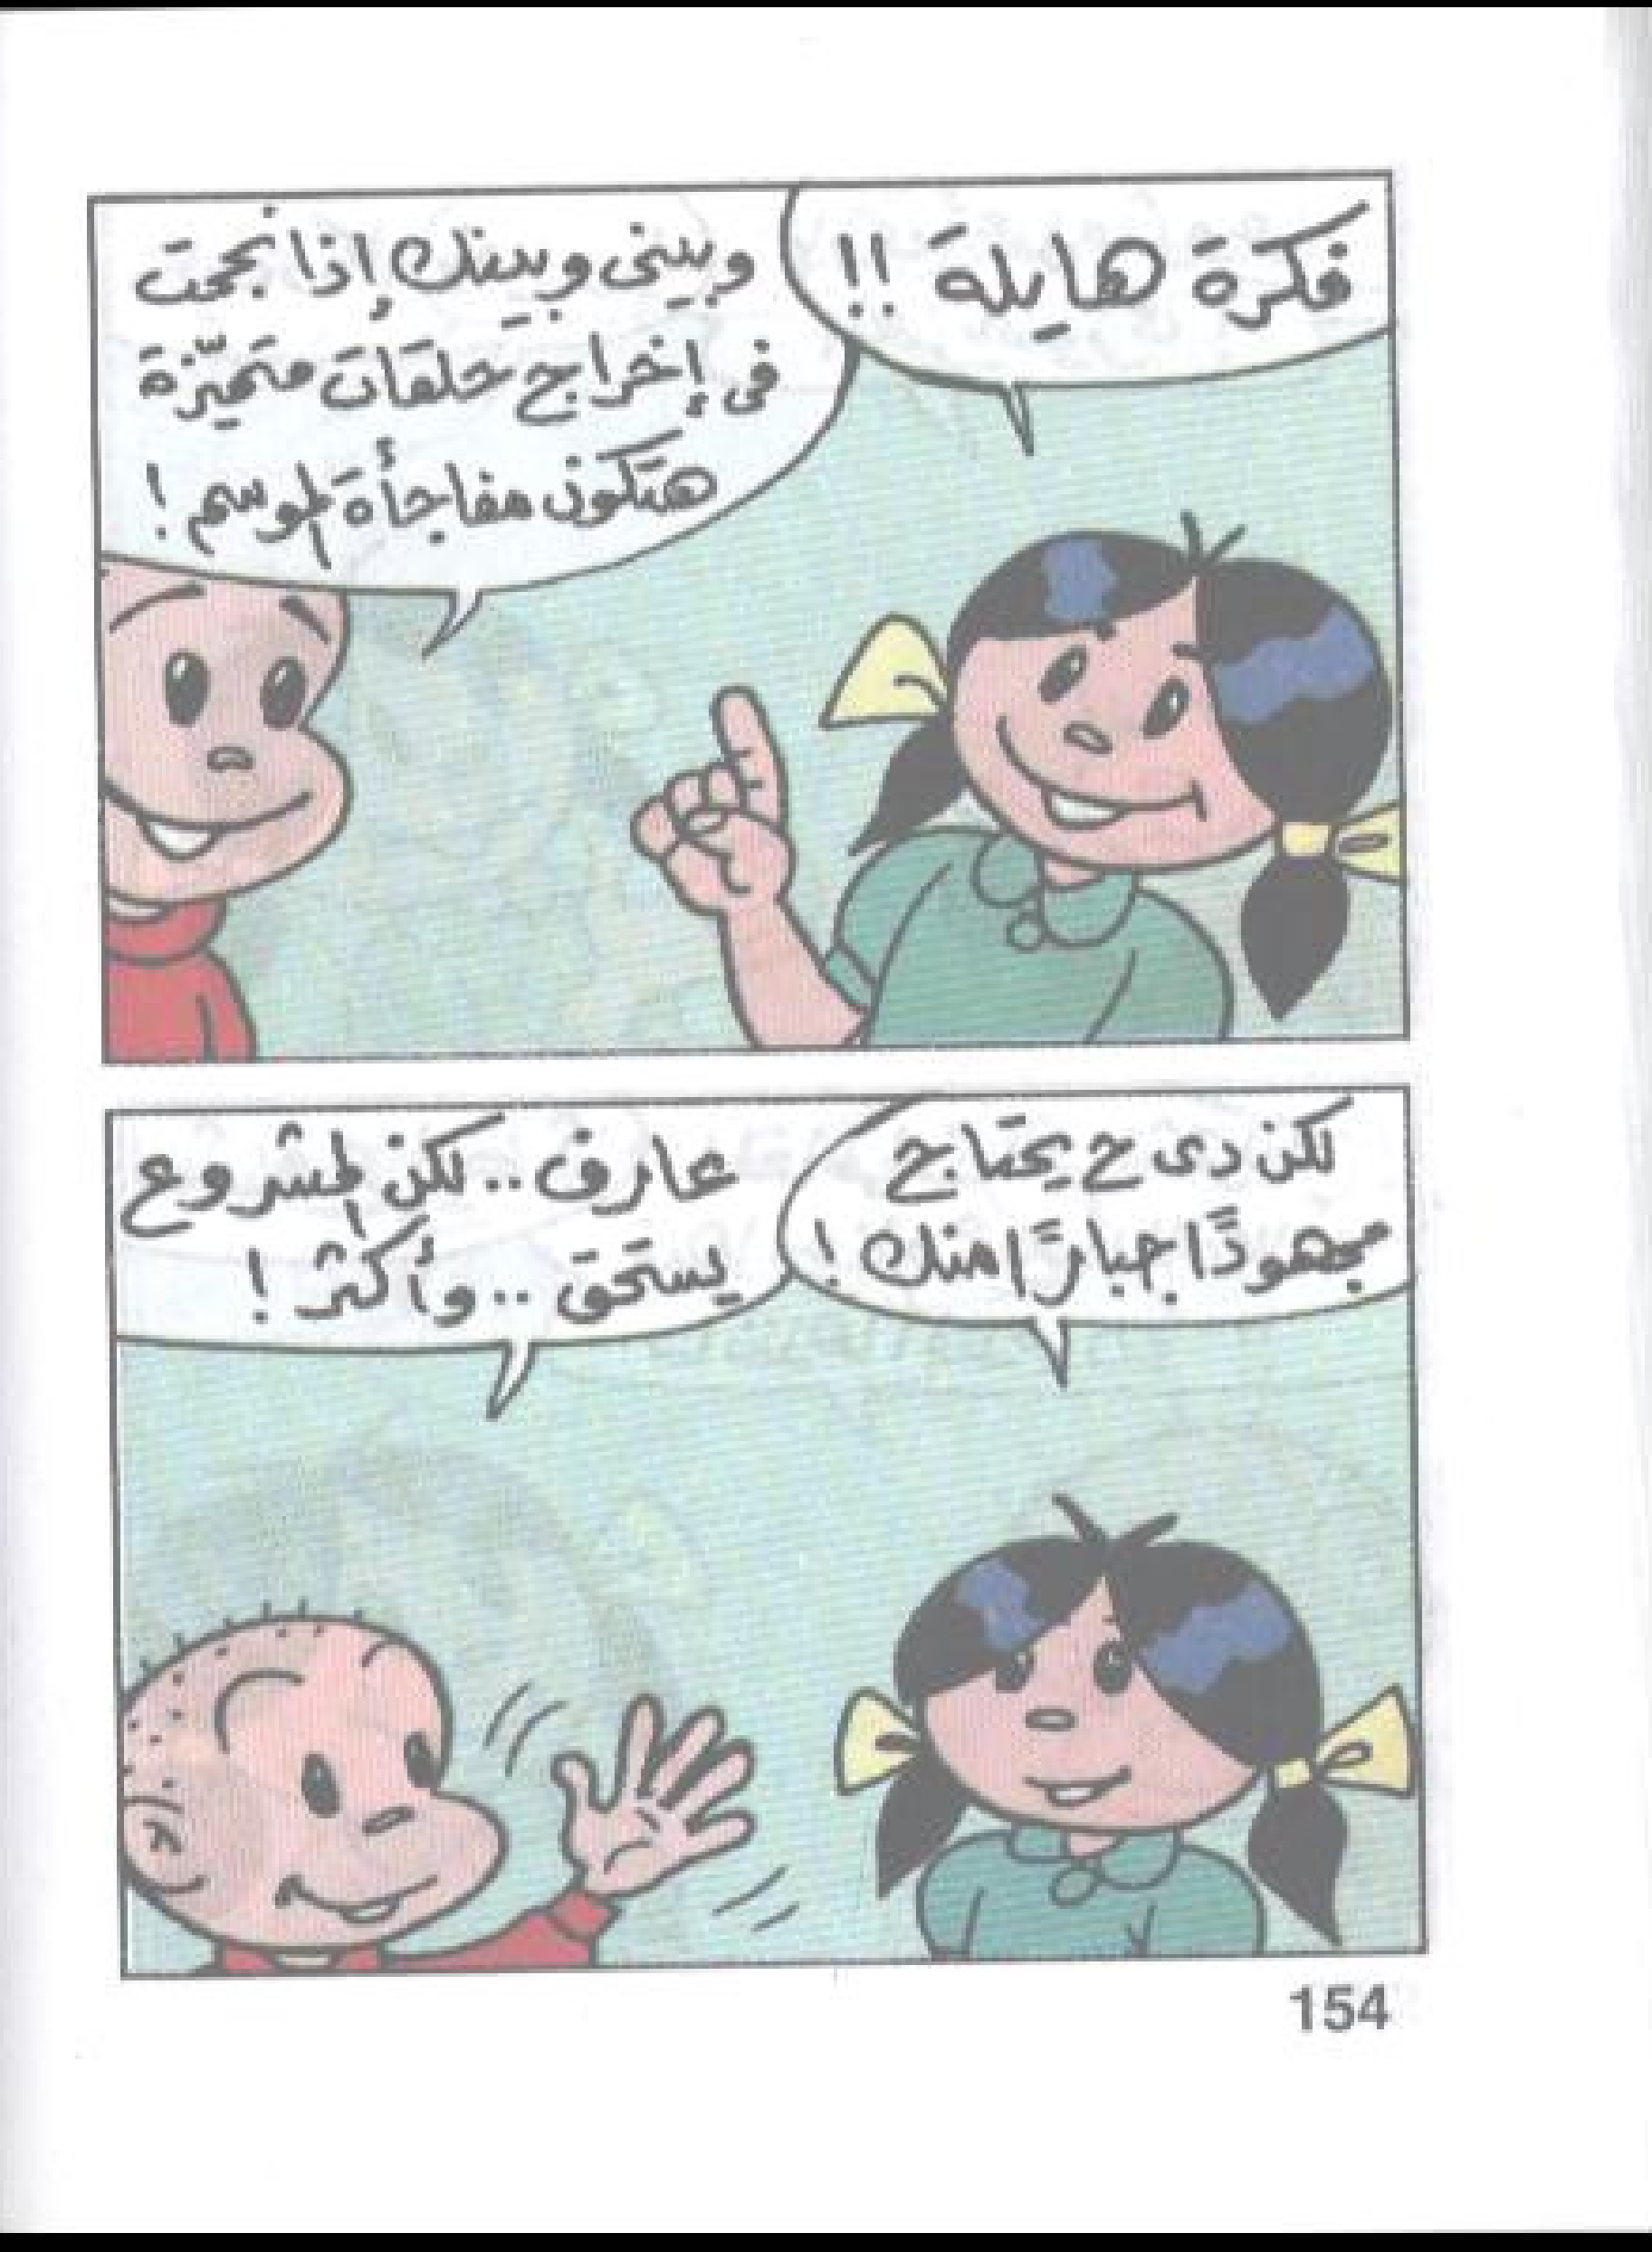 فكرة هايلة !!
وبينى وبينك إذا نجحت
فى إخراج حلقات متميّزة
هتكون مفاجأة الموسم !
لكن دى ح يحتاج
مجهودًا جبارًا منك !
عارف .. لكن المشروع
يستحق .. وأكثر !
154